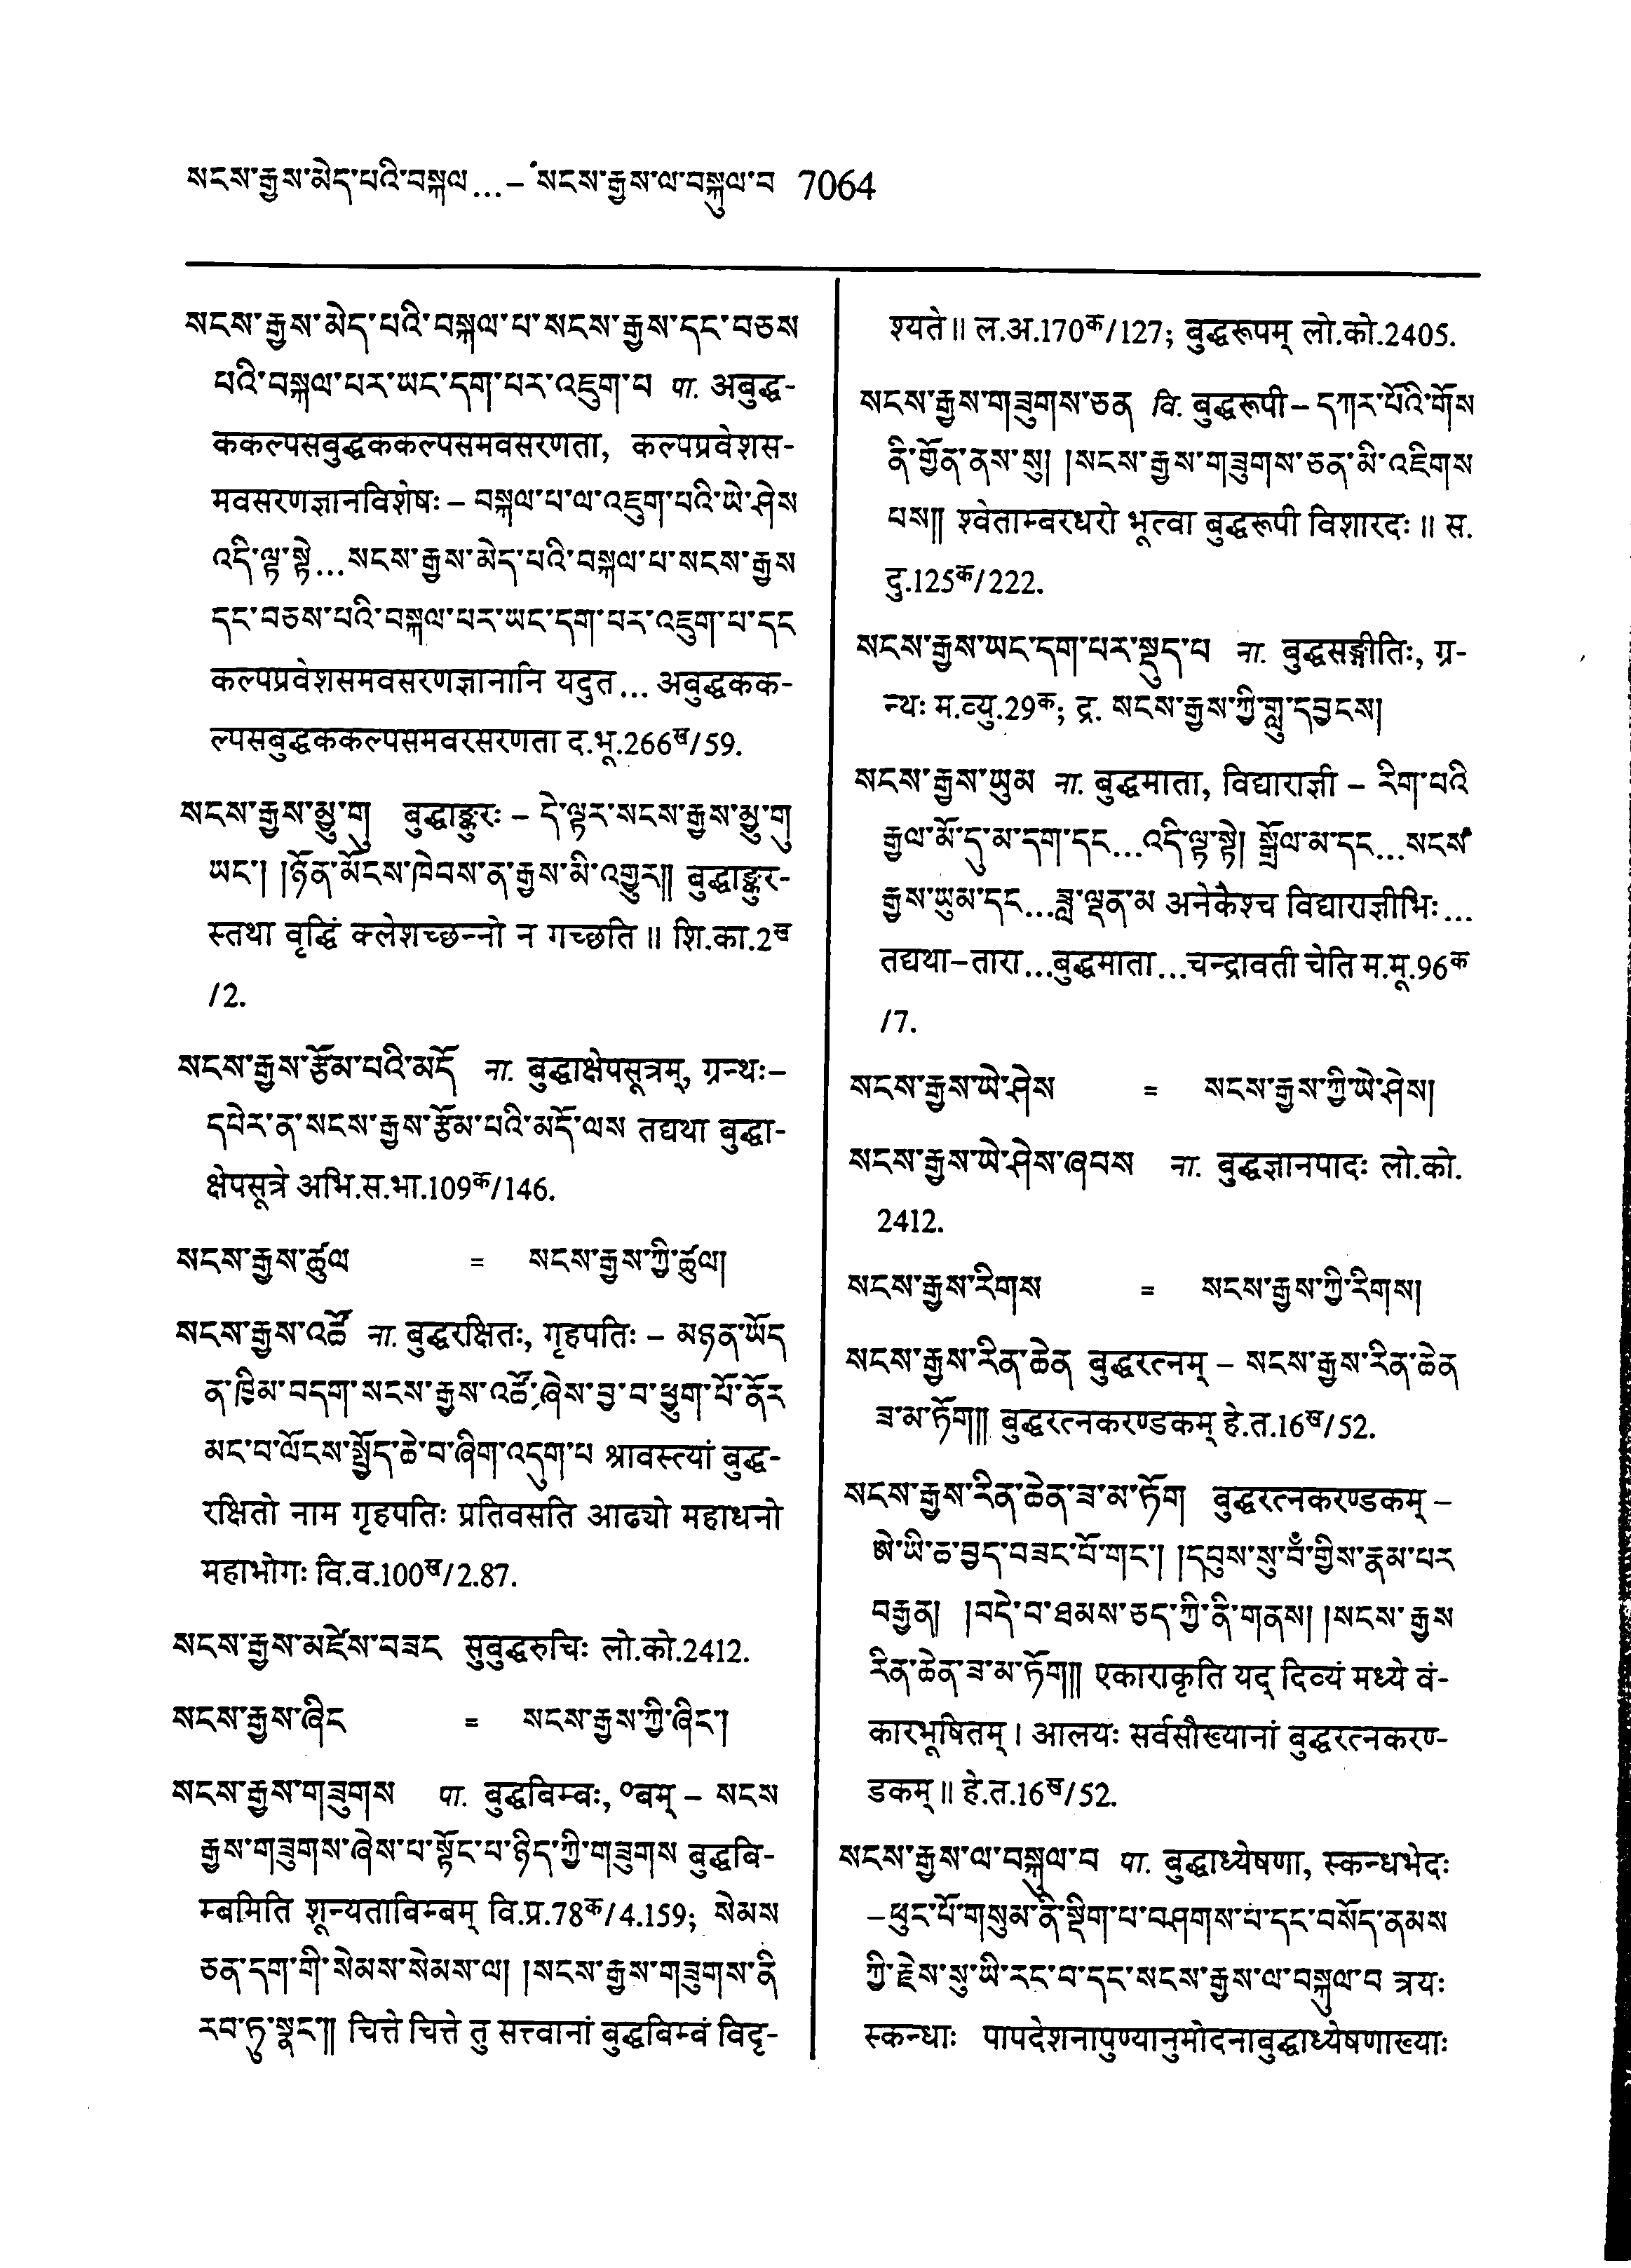 སངས་རྒྱས་མེད་པའི་བསྐལ...– སངས་རྒྱས་ལ་བསྐུལ་བ 7064
སངས་རྒྱས་མེད་པའི་བསྐལ་པ་སངས་རྒྱས་དང་བཅས
པའི་བསྐལ་པར་ཡང་དག་པར་འཇུག་པ पा. अबुद्ध-
ककल्पसबुद्धककल्पसमवसरणता, कल्पप्रवेशस-
मवसरणज्ञानविशेषः – བསྐལ་པ་ལ་འཇུག་པའི་ཡེ་ཤེས
འདི་ལྟ་སྟེ...སངས་རྒྱས་མེད་པའི་བསྐལ་པ་སངས་རྒྱས
དང་བཅས་པའི་བསྐལ་པར་ཡང་དག་པར་འཇུག་པ་དང
कल्पप्रवेशसमवसरणज्ञानानि यदुत... अबुद्धकक-
ल्पसबुद्धककल्पसमवरसरणता द.भू.266ख/59.
སངས་རྒྱས་མྱུ་གུ बुद्धाङ्कुरः – དེ་ལྟར་སངས་རྒྱས་མྱུ་གུ
ཡང་། །ཉོན་མོངས་ཁེབས་ན་རྒྱས་མི་འགྱུར།། बुद्धाङ्कुर-
स्तथा वृद्धिं क्लेशच्छन्नो न गच्छति ॥ शि.का.2ख
/2.
སངས་རྒྱས་རྩོམ་པའི་མདོ ना. बुद्धाक्षेपसूत्रम्, ग्रन्थः–
དཔེར་ན་སངས་རྒྱས་རྩོམ་པའི་མདོ་ལས तद्यथा बुद्धा-
क्षेपसूत्रे अभि.स.भा.109क/146.
སངས་རྒྱས་ཚུལ = སངས་རྒྱས་ཀྱི་ཚུལ།
སངས་རྒྱས་འཚོ ना. बुद्धरक्षितः, गृहपतिः – མཉན་ཡོད
ན་ཁྱིམ་བདག་སངས་རྒྱས་འཚོ་ཞེས་བྱ་བ་ཕྱུག་པོ་ནོར
མང་བ་ལོངས་སྤྱོད་ཆེ་བ་ཞིག་འདུག་པ श्रावस्त्यां बुद्ध-
रक्षितो नाम गृहपतिः प्रतिवसति आढ्यो महाधनो
महाभोगः वि.व.100ख/2.87.
སངས་རྒྱས་མཛེས་བཟང सुबुद्धरुचिः लो.को.2412.
སངས་རྒྱས་ཞིང = སངས་རྒྱས་ཀྱི་ཞིང་།
སངས་རྒྱས་གཟུགས पा. बुद्धबिम्बः, ॰बम् – སངས
རྒྱས་གཟུགས་ཞེས་པ་སྟོང་པ་ཉིད་ཀྱི་གཟུགས बुद्धबि-
म्बमिति शून्यताबिम्बम् वि.प्र.78क/4.159; སེམས
ཅན་དག་གི་སེམས་སེམས་ལ། །སངས་རྒྱས་གཟུགས་ནི
རབ་ཏུ་སྣང་།། चित्ते चित्ते तु सत्त्वानां बुद्धबिम्बं विदृ-
श्यते ॥ ल.अ.170क/127; बुद्धरूपम् लो.को.2405.
སངས་རྒྱས་གཟུགས་ཅན वि. बुद्धरूपी – དཀར་པོའི་གོས
ནི་གྱོན་ནས་སུ། །སངས་རྒྱས་གཟུགས་ཅན་མི་འཇིགས
པས།། श्वेताम्बरधरो भूत्वा बुद्धरूपी विशारदः ॥ स.
दु.125क/222.
སངས་རྒྱས་ཡང་དག་པར་སྡུད་པ ना. बुद्धसङ्गीतिः, ग्र-
न्थः म.व्यु.29क; द्र. སངས་རྒྱས་ཀྱི་གླུ་དབྱངས།
སངས་རྒྱས་ཡུམ ना. बुद्धमाता, विद्याराज्ञी – རིག་པའི
རྒྱལ་མོ་དུ་མ་དག་དང...འདི་ལྟ་སྟེ། སྒྲོལ་མ་དང...སངས
རྒྱས་ཡུམ་དང...ཟླ་ལྡན་མ अनेकैश्च विद्याराज्ञीभिः...
तद्यथा–तारा...बुद्धमाता...चन्द्रावती चेति म.मू.96क
/7.
སངས་རྒྱས་ཡེ་ཤེས = སངས་རྒྱས་ཀྱི་ཡེ་ཤེས།
སངས་རྒྱས་ཡེ་ཤེས་ཞབས ना. बुद्धज्ञानपादः लो.को.
2412.
སངས་རྒྱས་རིགས = སངས་རྒྱས་ཀྱི་རིགས།
སངས་རྒྱས་རིན་ཆེན बुद्धरत्नम् – སངས་རྒྱས་རིན་ཆེན
ཟ་མ་ཏོག།། बुद्धरत्नकरण्डकम् हे.त.16ख/52.
སངས་རྒྱས་རིན་ཆེན་ཟ་མ་ཏོག बुद्धरत्नकरण्डकम् –
ཨེ་ཡི་ཆ་བྱད་བཟང་པོ་གང་། །དབུས་སུ་བཾ་གྱིས་རྣམ་པར
བརྒྱན། །བདེ་བ་ཐམས་ཅད་ཀྱི་ནི་གནས། །སངས་རྒྱས
རིན་ཆེན་ཟ་མ་ཏོག།། एकाराकृति यद् दिव्यं मध्ये वं-
कारभूषितम् । आलयः सर्वसौख्यानां बुद्धरत्नकरण-
डकम् ॥ हे.त.16ख/52.
སངས་རྒྱས་ལ་བསྐུལ་བ पा. बुद्धाध्येषणा, स्कन्धभेदः
–ཕུང་པོ་གསུམ་ནི་སྡིག་པ་བཤགས་པ་དང་བསོད་ནམས
ཀྱི་རྗེས་སུ་ཡི་རང་བ་དང་སངས་རྒྱས་ལ་བསྐུལ་བ त्रयः
स्कन्धाः पापदेशनापुण्यानुमोदनाबुद्धाध्येषणाख्याः